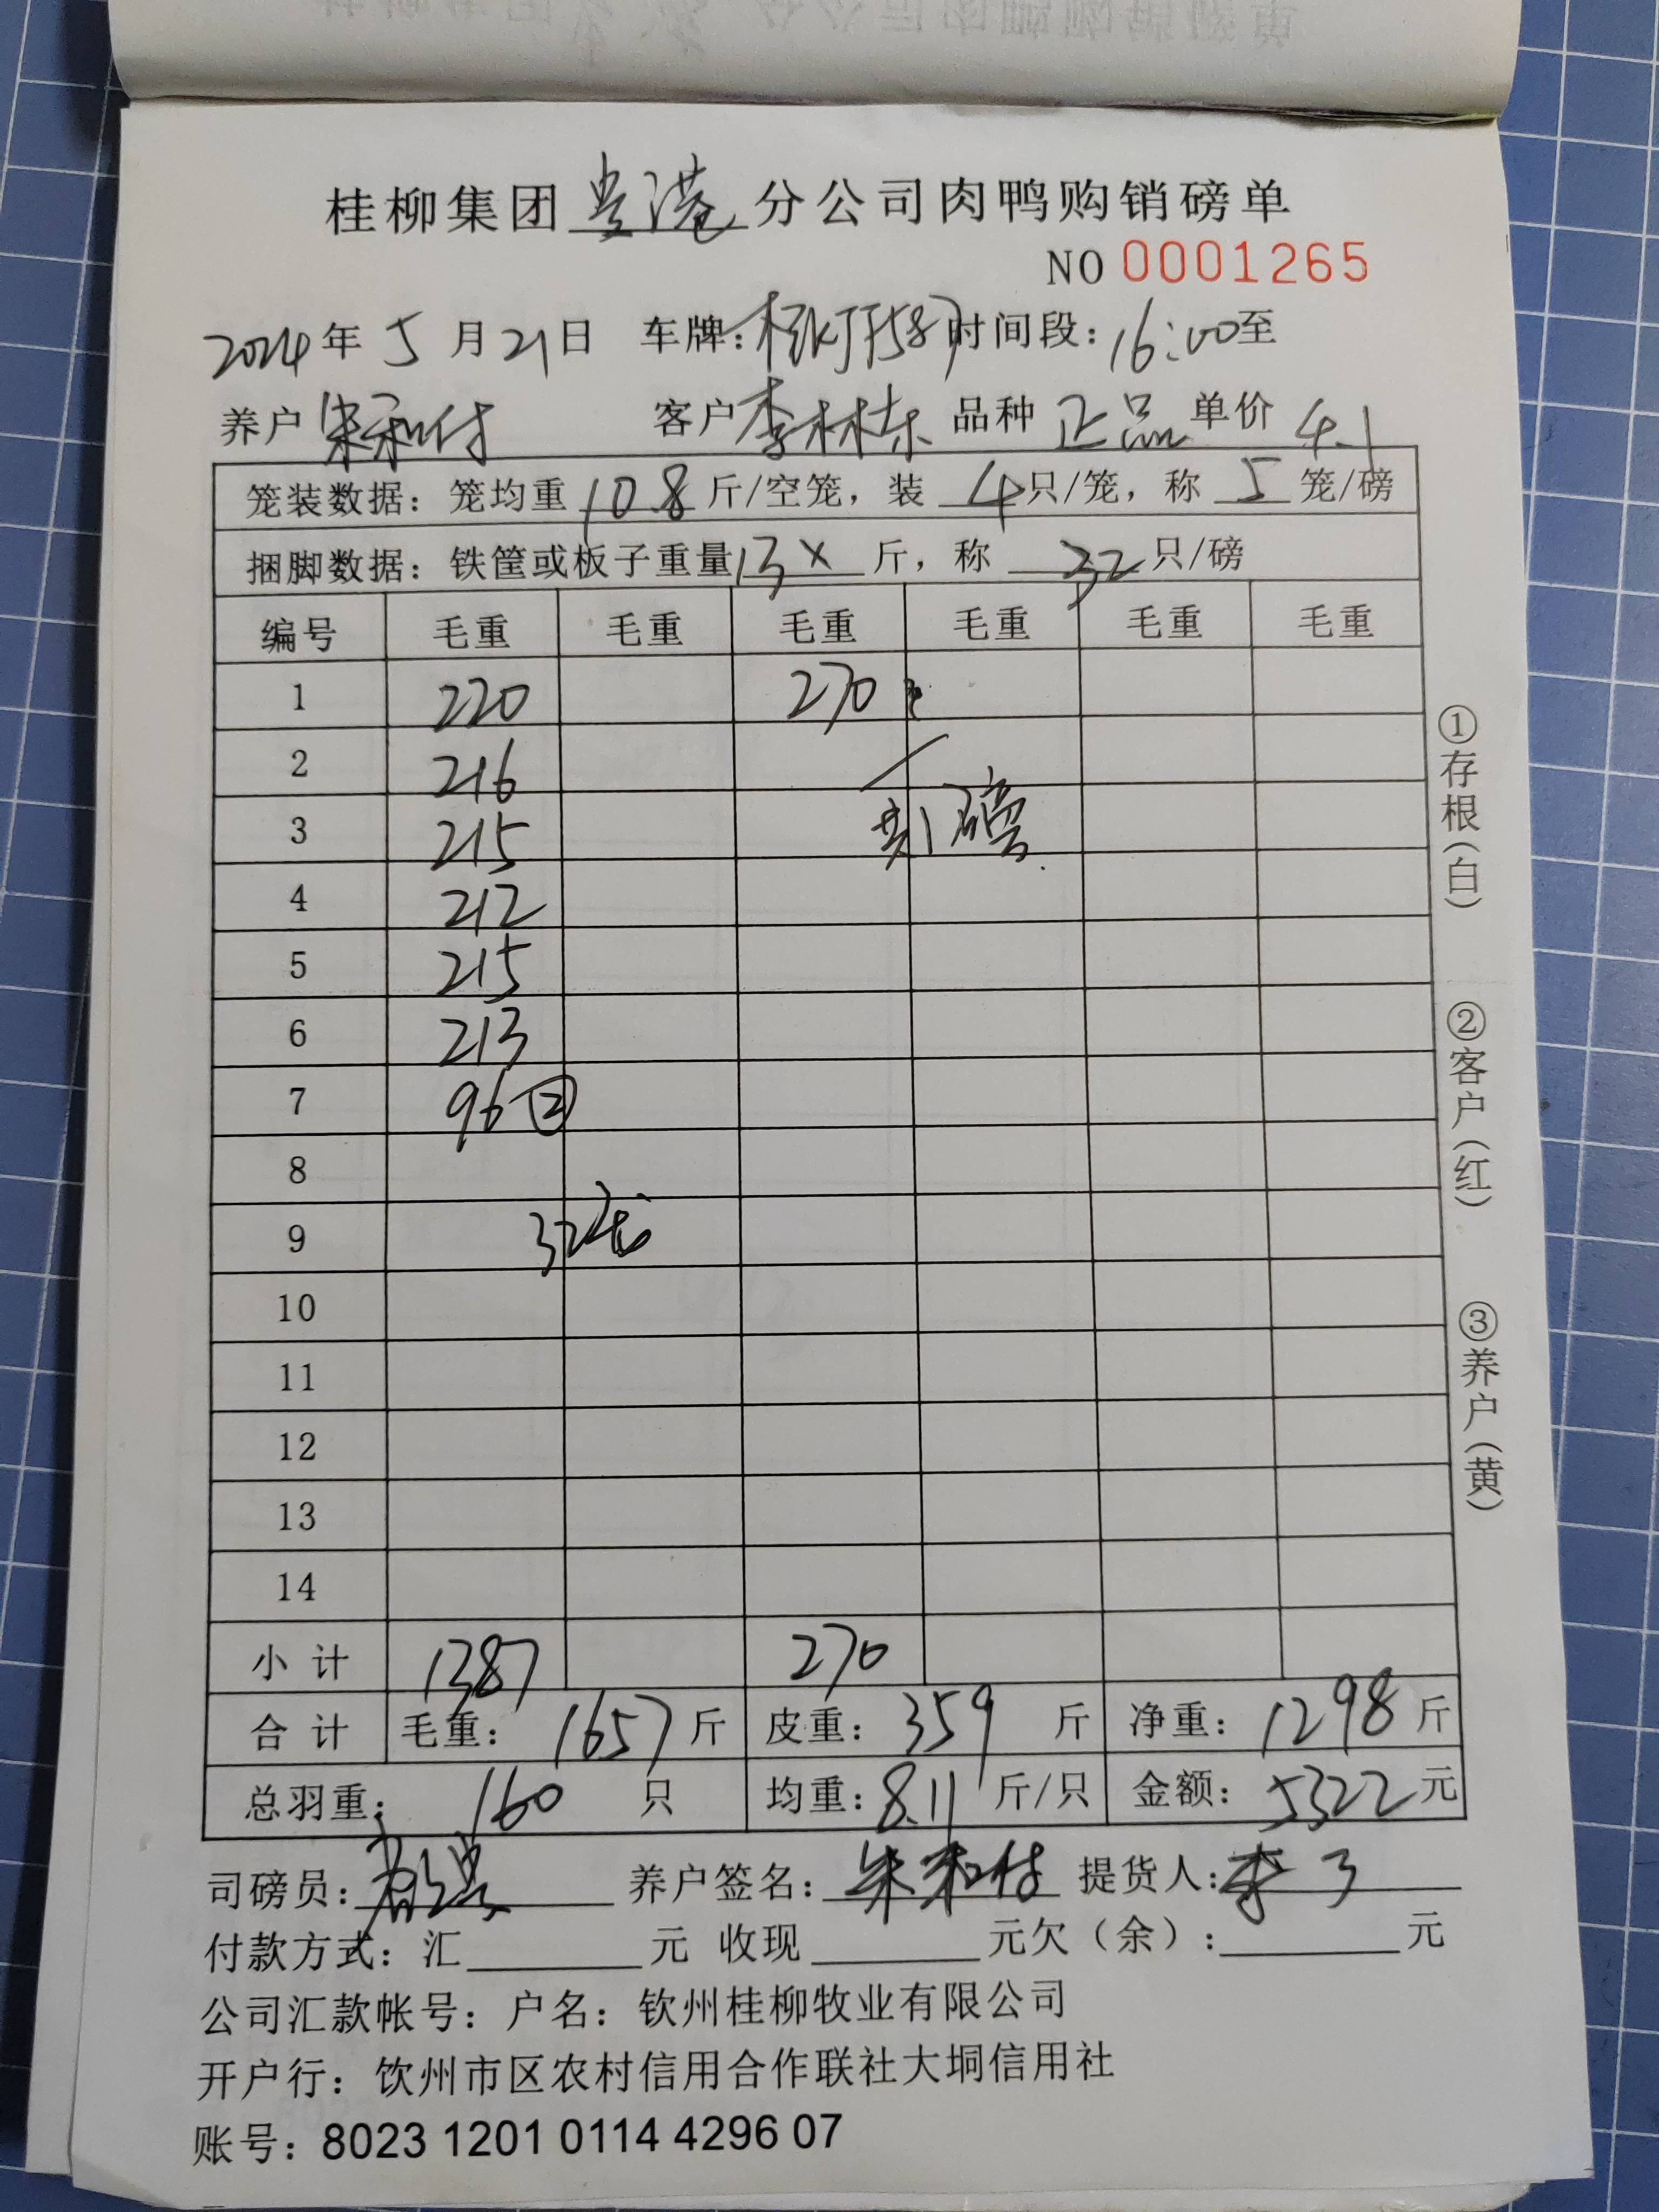 桂柳集团贵港分公司肉鸭购销磅单
NO 0001265
2024年5月21日 车牌: 时间段:16:00至
养户 朱和付 客户李林东 品种 正品 单价 4.1
笼装数据:笼均重 10.8 斤/空笼,装 4只/笼,称 5 笼/磅
捆脚数据:铁筐或板子重量13× 斤,称 32只/磅
编号 毛重 毛重 毛重 毛重 毛重 毛重
1 220 270
2 216
3 215 磅
4 212
5 215
6 213
7 96②
8
9 32笼
10
11
12
13
14
小计 1387 270
合计 毛重: 1657斤 皮重: 359 斤 净重: 1298斤
总羽重: 160 只 均重:8.11 斤/只 金额: 5322元
司磅员: 养户签名:朱和付 提货人:李
付款方式:汇 元 收现 元欠(余): 元
公司汇款帐号:户名:钦州桂柳牧业有限公司
开户行:钦州市区农村信用合作联社大垌信用社
账号:8023 1201 0114 4296 07
①存根(白)
②客户(红)
③养户(黄)